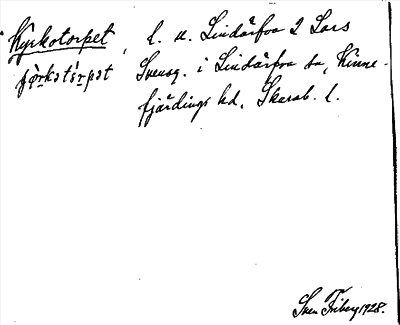 Kyrkotorpet, l. u. Lindärfva 2 Lars
Svensg. i Lindärfva sn, Kinne-
fjärdings hd, Skarab. l.
Sven Friberg 1928.